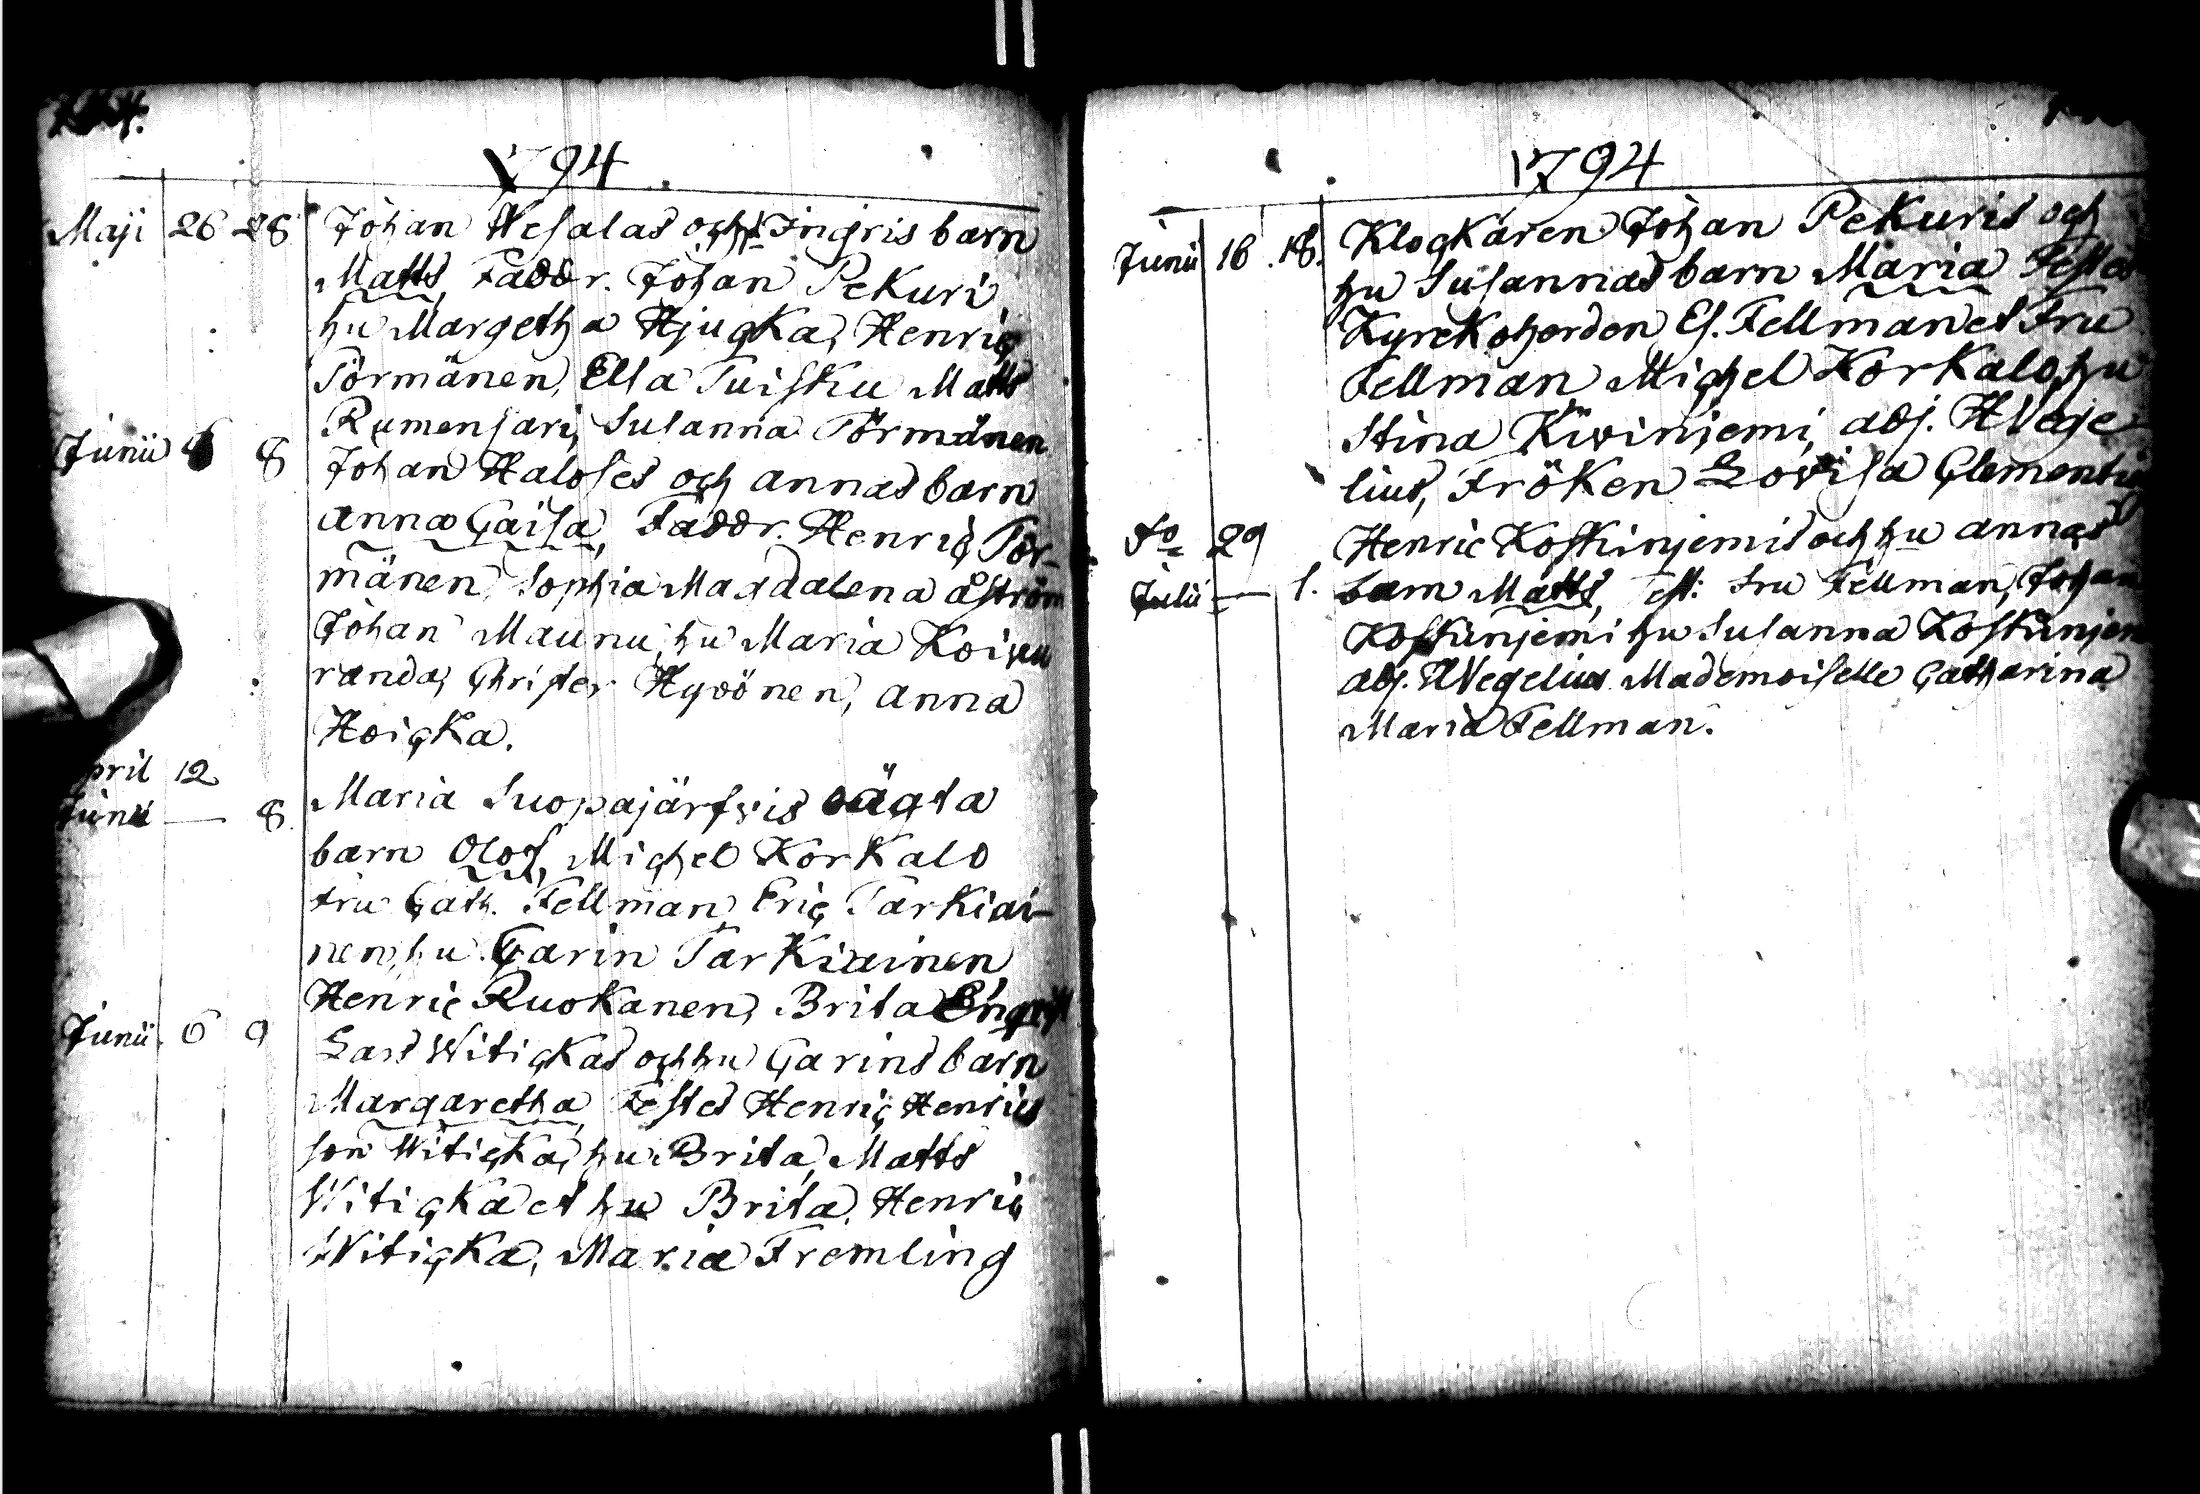 1794
Maji 26 28 Johan Wesalas och h Ingris barn
Matts, Faddr. Johan Pekuri
hu Margetha Hjucka, Henric
Törmänen, Ella Tuisku Matts
Rumensari, Susanna Törmänen
Junii 6 8 Johan Haloses och annas barn
anna Caisa, Faddr. Henric Tör-
mänen, Sophia Magdalena åström
Johan Maunu, hu Maria Koivu
randa, Christer Hyvönen, anna
Hoicka.
April 12
Junii — 8 Maria Suopajärfvis oägta
barn Olof, Michel Korkalo
fru Cath. Fellman, Eric Tarkiai-
nen, hu Carin Tarkiainen
Henric Ruokanen, Brita
Junii 6 9 Lars Witickas och hu Carins barn
Margaretha, Testes Henric Henrics
son Witicka, hu Brita, Matts
Witicka et hu Brita, Henric
Witicka, Maria Fremling
1794
Junii 16 18. Klockaren Johan Pekuris och
hu Susannas barn Maria Testes
Kyrckoherden Es. Fellman et Fru
Fellman Michel Korkalo, hu
Stina Kivinjemi, adj. H Wege
lius, Fröken Lovisa Clementie
Do 29 Henric Koskinjemis och hu annas
Julii — 1. barn Matts, Test: fru Fellman, Johan
Koskinjemi hu Susanna Koskinjem
adj. H Wegelius Mademoiselle Catharina
Maria Fellman.